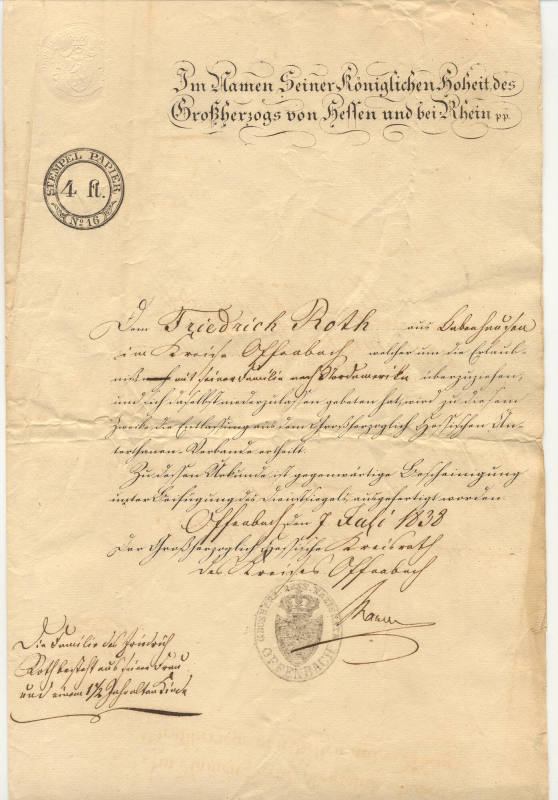 Im Namen Seiner Königlichen Hoheit des
Großherzogs von Hessen und bei Rhein pp.
STEMPEL PAPIER
4 fl.
No. 16
Dem Friedrich Roth aus Babenhausen
im Kreise Offenbach welcher um die Erlaub-
niß mit seiner Familie nach Nordamerika überzuziehen,
und sich daselbst niederzulassen gebeten hat, wird zu diesem
Zwecke die Entlassung aus dem Großherzoglich Hessischen Un-
terthanen-Verbande ertheilt.
Zu dessen Urkunde ist gegenwärtige Bescheinigung
unter Beifügung des Dienstsiegels ausgefertigt worden
Offenbach den 7 Juli 1838
Der Großherzoglich Hessische Kreisrath
des Kreises Offenbach
OFFENBACH
Die Familie des Friedrich
Roth besteht aus seiner Frau
und einem 1½ Jahr alten Kinde